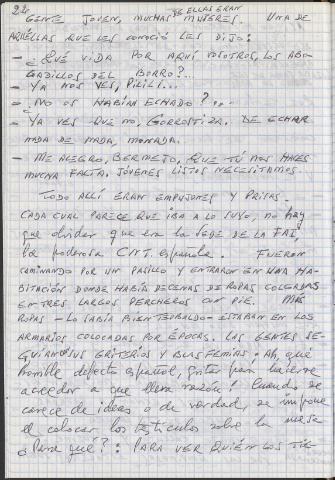 22
DE ELLAS ERAN
GENTE JOVEN, MUCHAS MUJERES. UNA DE
AQUÉLLAS QUE LES CONOCIÓ LES DIJO:
- ¿QUÉ VIDA POR AQUÍ VOSOTROS, LOS ABO-
GADILLOS DEL BORRO?...
- YA NOS VES, PIRILI...
- ¿NO OS HABÍAN ECHADO?...
- YA VES QUE NO, GORROSTIZA. DE ECHAR
NADA DE NADA, MONADA.
- ME ALEGRO, BERMEJO, QUE TÚ NOS HACES
MUCHA FALTA. JÓVENES LISTOS NECESITAMOS.
TODO ALLÍ ERAN EMPUJONES Y PRISAS.
CADA CUAL PARECE QUE IBA A LO SUYO, no hay
que olvidar que era la SEDE DE LA FAI,
la poderosa CNT. española. FUERON
CAMINANDO POR UN PASILLO Y ENTRARON EN UNA HA-
BITACIÓN DONDE HABÍA DECENAS DE ROPAS COLGADAS
EN TRES LARGOS PERCHEROS CON PIE. MÁS
ROPAS - LO SABÍA BIEN TEOBALDO - ESTABAN EN LOS
ARMARIOS COLOCADAS POR ÉPOCAS. LAS GENTES SE-
GUÍAN SUS GRITERÍOS Y BLASFEMIAS: Ah, qué
horrible defecto español, gritar para hacerse
acreedor a que lleva razón! Cuando se
carece de ideas o de verdad, se impone
el colocar los testículos sobre la mesa
¿Para qué?: PARA VER QUIÉN LOS TIE-